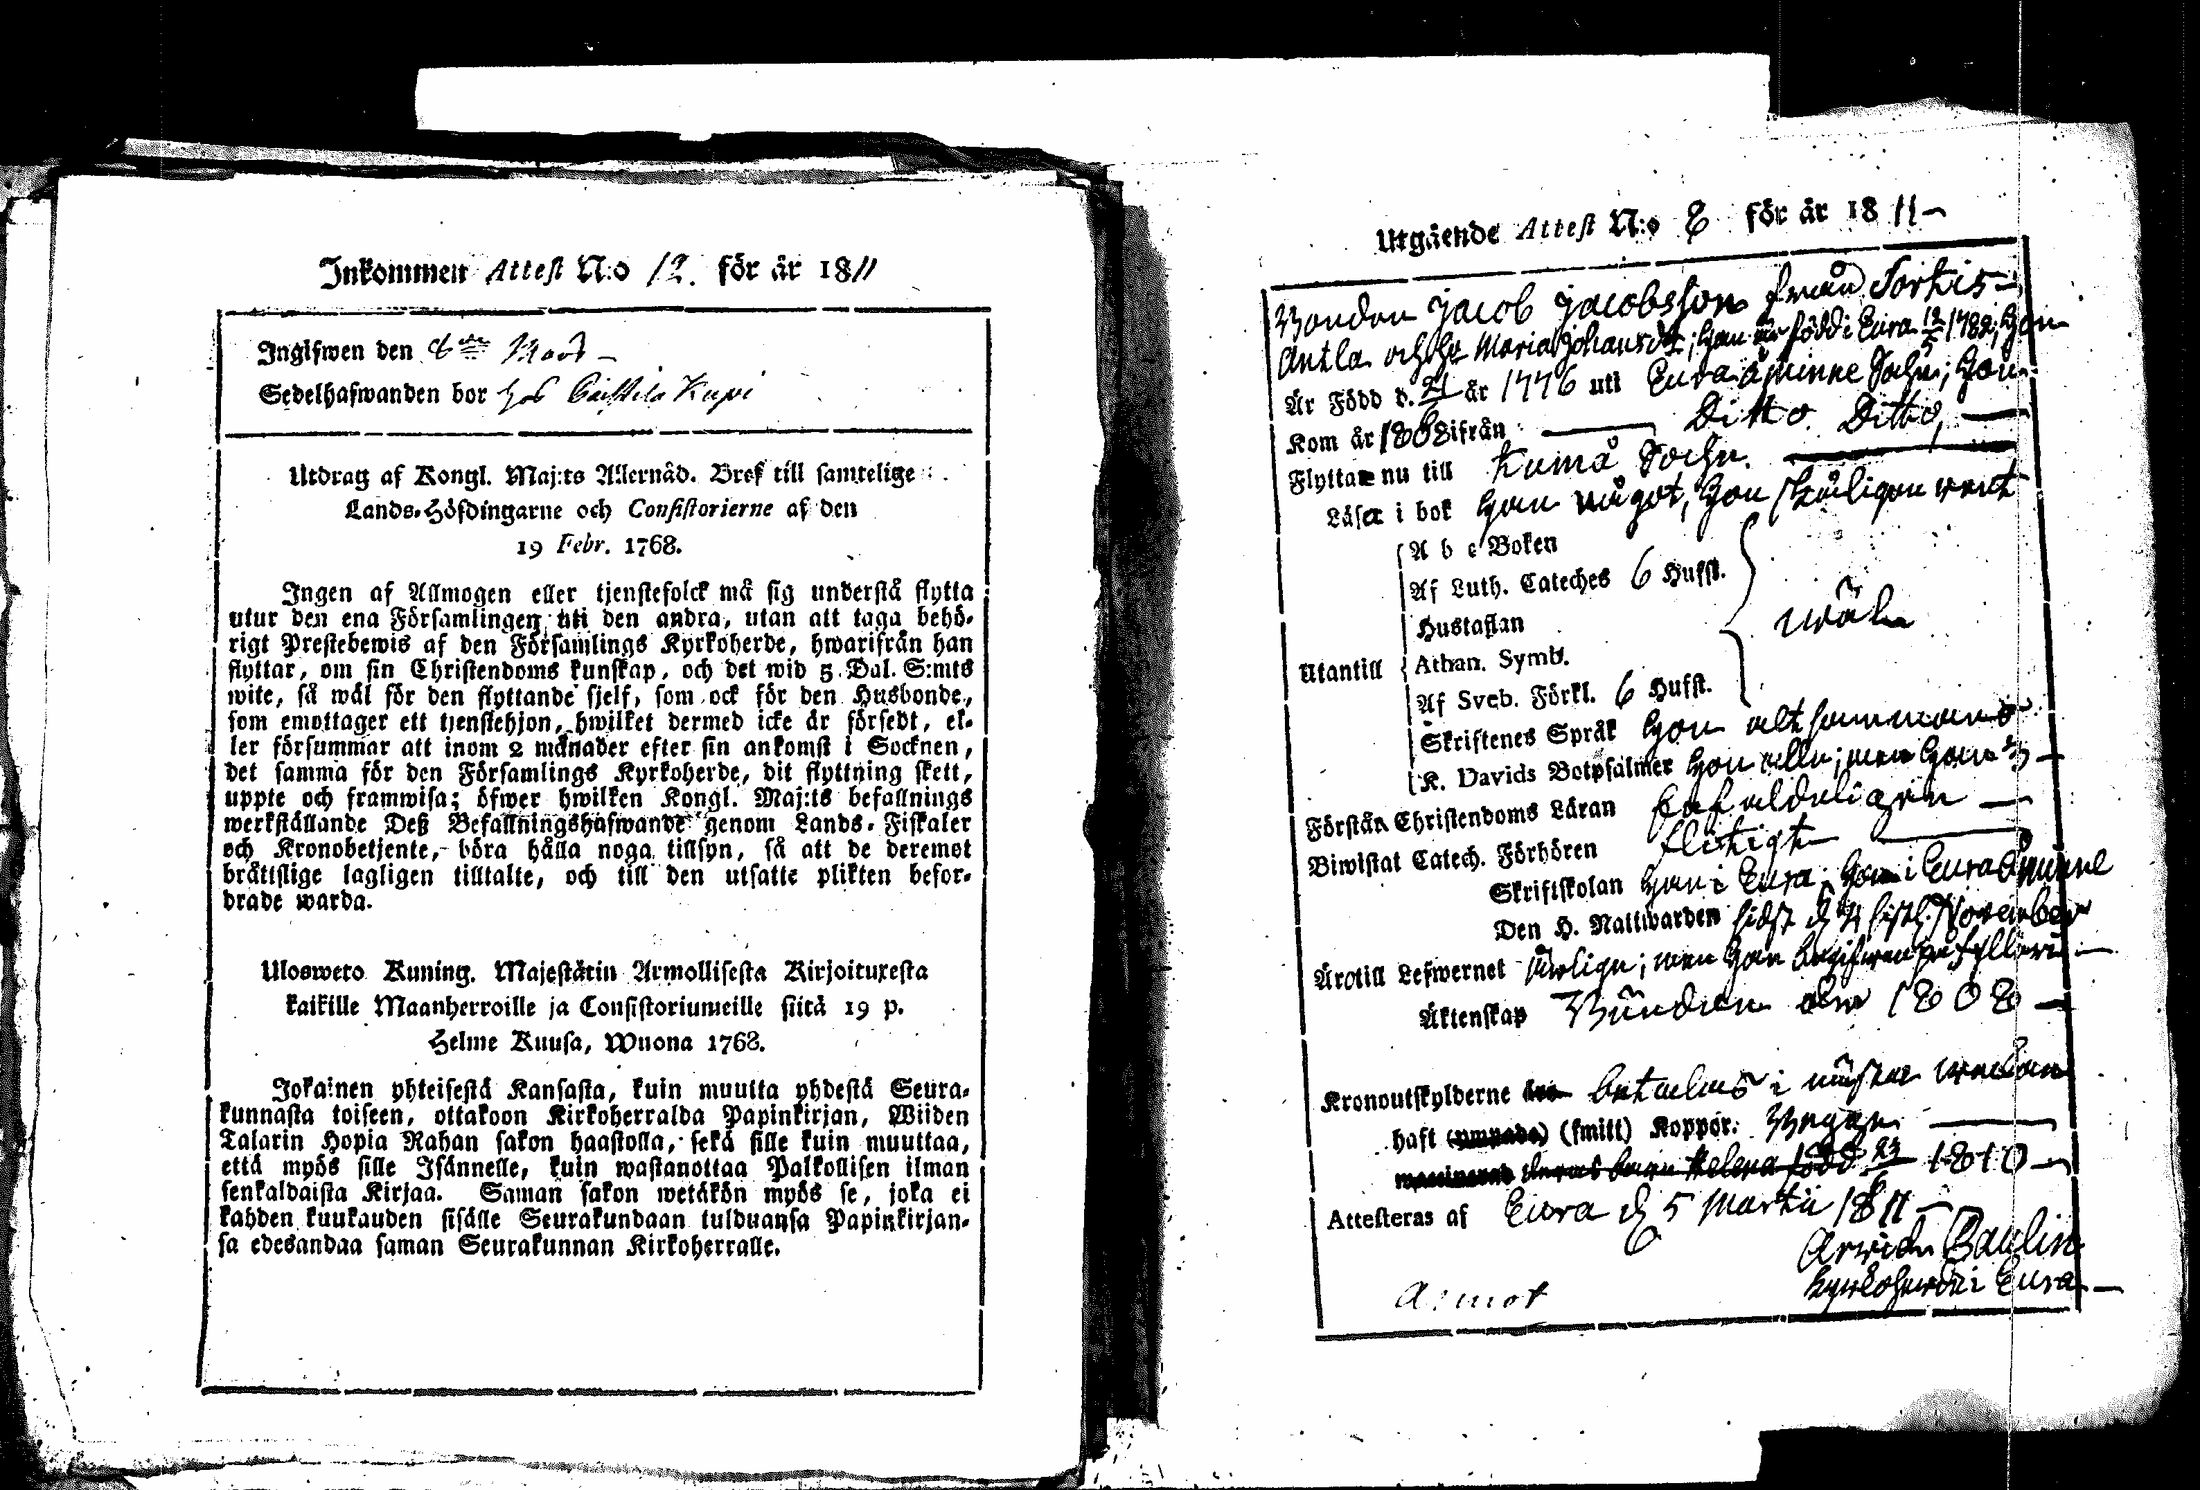 Inkommen Attest N:o 12. för år 1811
Ingifwen den 8de
Sedelhafwanden bor hos
Utdrag af Kongl. Maj:ts Allernåd. Bref till samtelige
Lands-Höfdingarne och Consistorierne af den
19 Febr. 1768.
Ingen af Allmogen eller tjenstefolck må sig understå flytta
utur den ena Församlingen uti den andra, utan att taga behö-
rigt Prestebewis af den Församlings Kyrkoherde, hwarifrån han
flyttar, om sin Christendoms kunskap, och det wid 5. Dal. S:mts
wite, så wäl för den flyttande sjelf, som ock för den Husbonde,
som emottager ett tjenstehjon, hwilket dermed icke är försedt, el-
ler försummar att inom 2 månader efter sin ankomst i Socknen,
det samma för den Församlings Kyrkoherde, dit flyttning skett,
uppte och framwisa; öfwer hwilken Kongl. Maj:ts befallnings
werkställande Deß Befallningshafwande genom Lands-Fiskaler
och Kronobetjente, böra hålla noga tillsyn, så att de deremot
bråttslige lagligen tilltalte, och till den utsatte plikten befor-
drade warda.
Ulosweto Kuning. Majestätin Armollisesta Kirjoituxesta
kaikille Maanherroille ja Consistoriumeille siitä 19 p.
Helme Kuusa, Wuona 1768.
Jokainen yhteisestä Kansasta, kuin muutta yhdestä Seura-
kunnasta toiseen, ottakoon Kirkoherralda Papinkirjan, Wiiden
Talarin Hopia Rahan sakon haastolla, sekä sille kuin muuttaa,
että myös sille Isännelle, kuin wastanottaa Palkollisen ilman
senkaldaista Kirjaa. Saman sakon wetäkön myös se, joka ei
kahden kuukauden sisälle Seurakundaan tulduansa Papinkirjan-
sa edesandaa saman Seurakunnan Kirkoherralle.
Utgående Attest N:o 8 för år 1811
Bonden Jacob Jacobsson från Sorkis
Antla och Maria Johansdr; Han är född i Eura 12/5 1782; Hon
Är Född d. 21/6 år 1776 uti Euraåminne Sochn; Hon
Kom år 1808 ifrån Ditto Ditto,
Flyttar nu till Kumå Sochn.
Läser i bok Han något, Hon skäligen rent
A b c Boken
Af Luth. Cateches 6 Hufst.
Hustaflan
wäl
Utantill Athan. Symb.
Af Sveb. Förkl. 6 Hufst.
Skriftenes Språk Hon altsammans
K. Davids Botpsalmer Hon alla; men Han 3
Förstår Christendoms Läran enfaldeligen
Biwistat Catech. Förhören flitigt
Skriftskolan Han i Eura, Hon i Euraåminne
Den H. Nattwarden sidst d. November
Äro till Lefwernet ärlige; men Han begifwen på fylleri
Äktenskap 1808
Kronoutskylderne betalas i
haft (ympade) (smitt) Koppor. Begge
barn Helena född 23/ 1810
Attesteras af Eura d. 5 Martii 1811
Arvid Paulin
Kyrkoherde i Eura